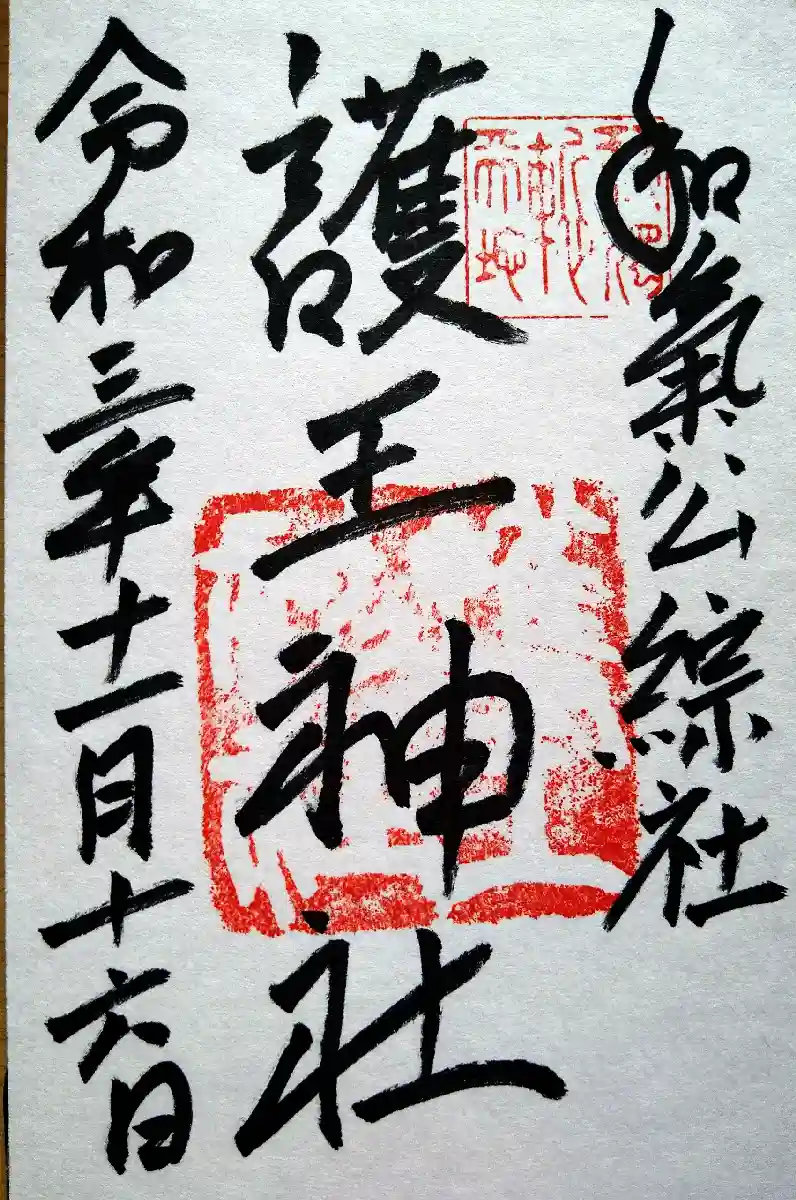 和氣公綜社
護王神社
令和三年十一月十六日